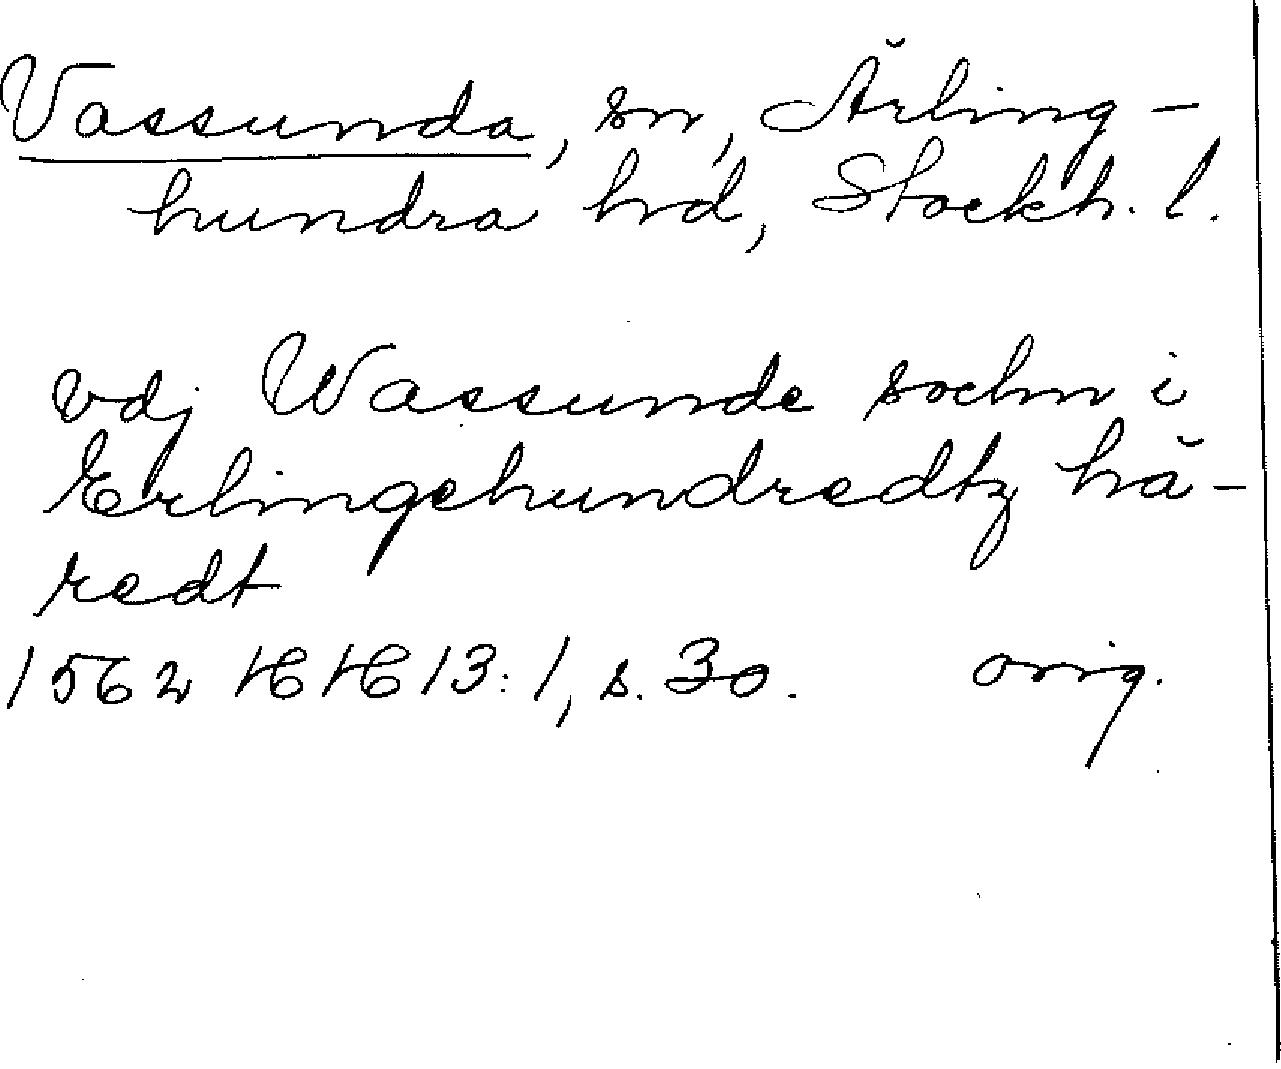 Vassunda, sn, Ärling-
hundra hd, Stockh. l.
vdj Wassunde sochn i
Erlingehundredtz hä-
redt
1562 HH 13:1, s. 30. orig.